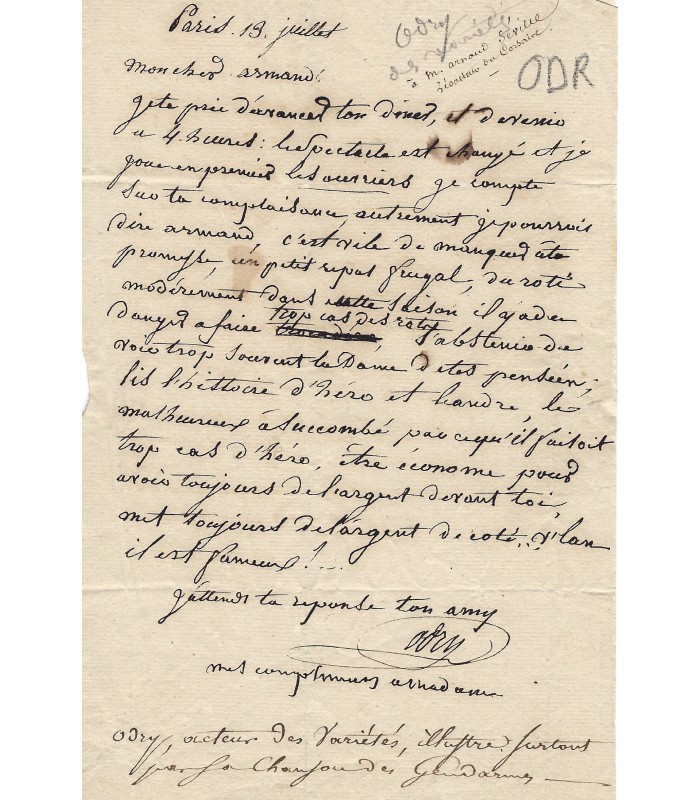 Paris 13. juillet
Odry
des Variétés
à m. arnaud Séville
Rédacteur du Corsaire.
ODR
mon cher armand!
je te prie d'avancer ton diner, et de venir
a 4. heures: le Spectacle est changé et je
joue en premier les ouvriers je compte
Sur ta complaisance, autrement je pourrois
dire armand, c'est vile de manquer à ta
promesse, un petit repas frugal, du roti
modérément dans cette Saison il y a du
danger a faire trop cas des rots, S'abstenir de
voir trop Souvent la Dame de tes pensées,
lis l'histoire d'héro et Leandre, le
malheureux à Succombé parcequ'il faisoit
trop cas d'héro, être économe pour
avoir toujours de l'argent devant toi,
met toujours de l'argent de coté... V'lan
il est fameux!...
j'attends ta reponse ton amy
odry
mes complimens a madame
Odry, acteur des Variétés, illustre surtout
par sa Chanson des Gendarmes —